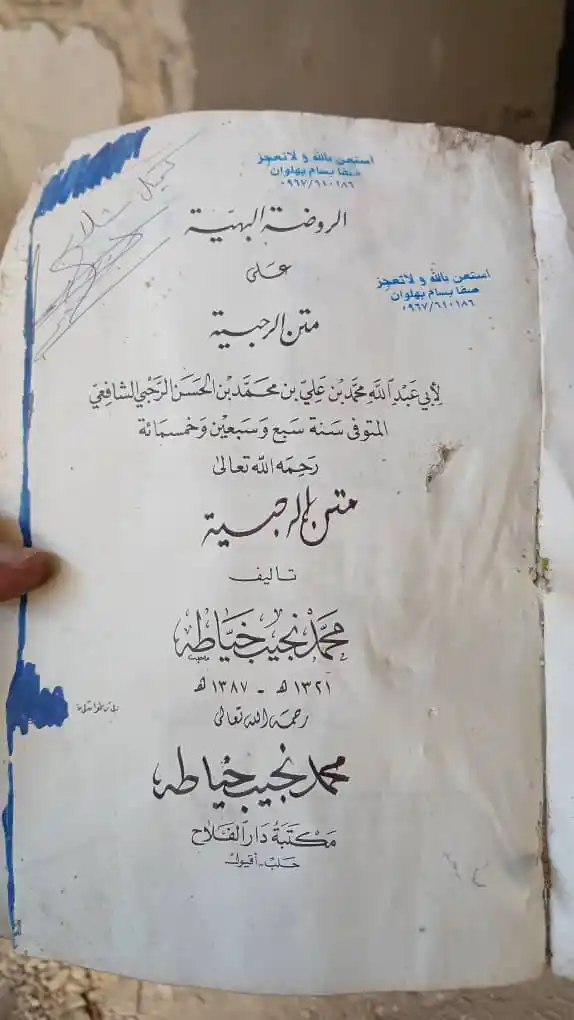 استعن بالله و لاتعجز
صفا بسام بهلوان
٠٩٦٧/٦١٠١٨٦
الروضة البهيّة
عَلىٰ
استعن بالله و لاتعجز
صفا بسام بهلوان
٠٩٦٧/٦١٠١٨٦
متن الرحبية
لأبي عَبْد اَللَّه محمَّد بْن عَليّ بن محَمَّد بْن الحَسَن الرَّحْبي الشافعيّ
المتوفى سَنة سَبع وَسَبعين وَخمسمائة
رَحِمَه اللَّه تعَالىٰ
متن الرحبية
تأليف
محمَّد نجيب خيَّاطة
١٣٢١ هـ - ١٣٨٧ هـ
رحمَه الله تعَالىٰ
محمد نجيب خياطة
مَكتبَة دَار الفَلاح
حَلبْ - أقيول